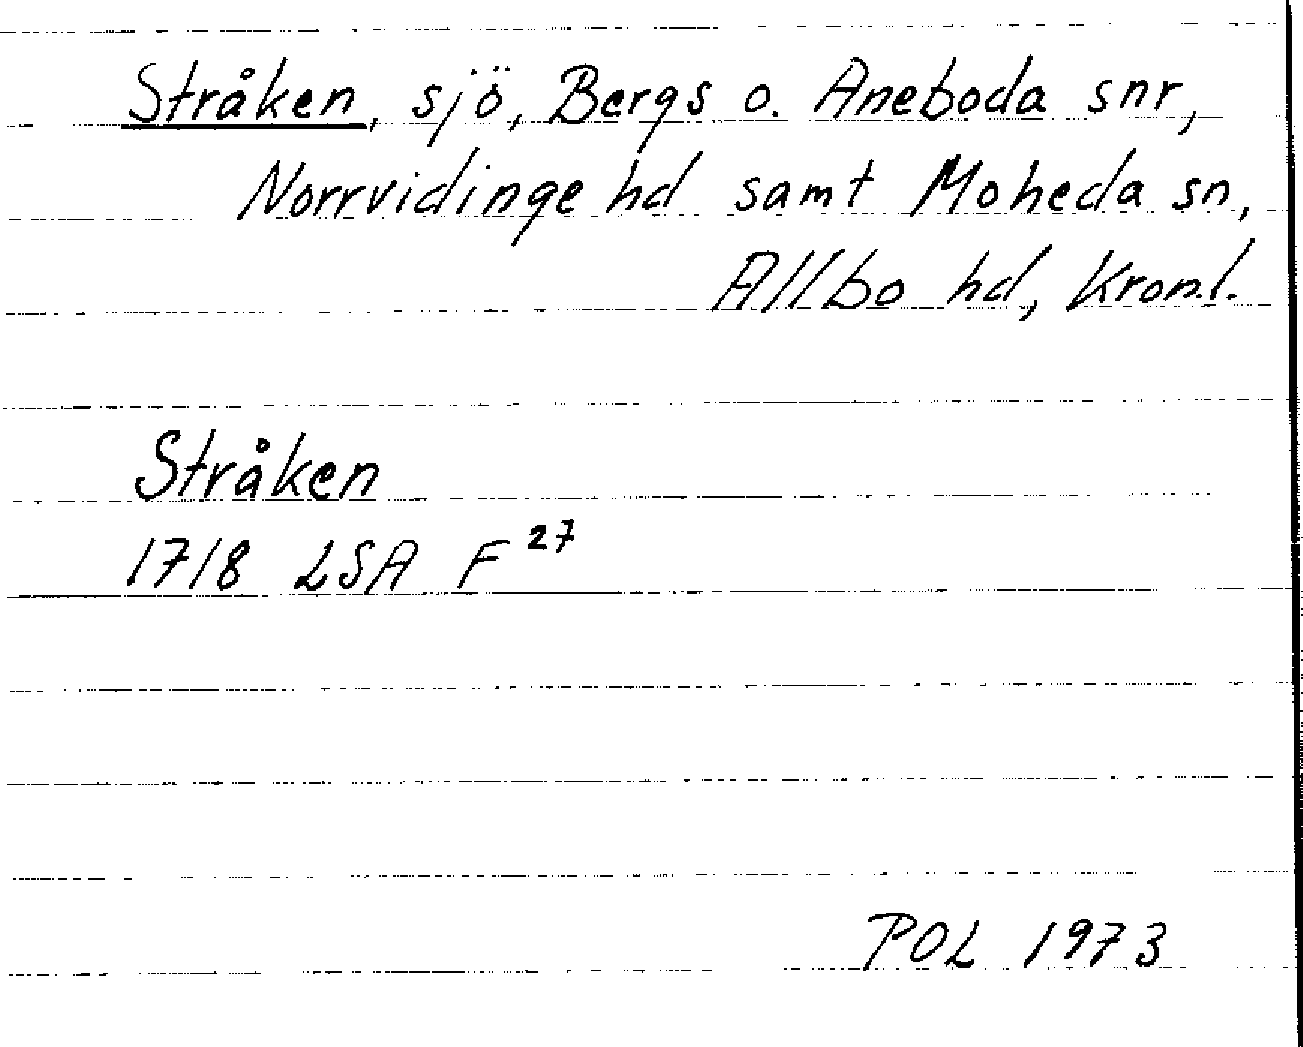 Stråken, sjö, Bergs o. Aneboda snr,
Norrvidinge hd samt Moheda sn,
Allbo hd, Kron.l.
Stråken
1718 LSA F 27
POL 1973